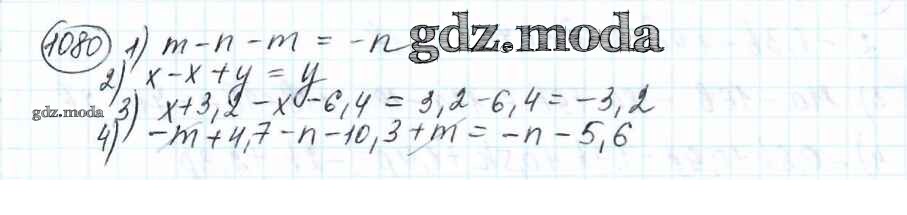 1080 1) m - n - m = -n gdz.moda
2) x - x + y = y
gdz.moda 3) x + 3,2 - x - 6,4 = 3,2 - 6,4 = -3,2
4) -m + 4,7 - n - 10,3 + m = -n - 5,6